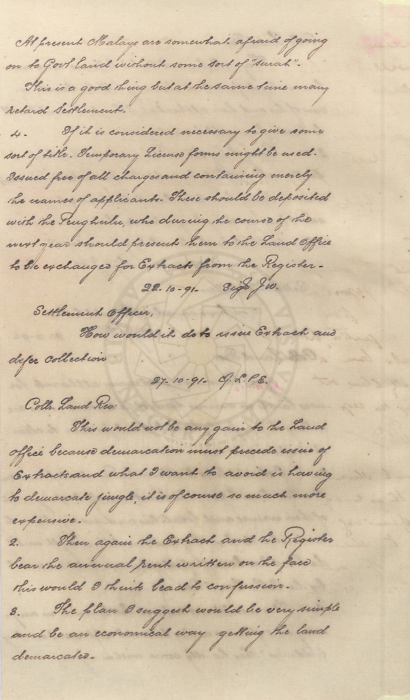 At present Malays are somewhat afraid of going
on to Govt land without some sort of "surat".
This is a good thing but at the same time may
retard settlement.
4. If it is considered necessary to give some
sort of title. Temporary License forms might be used.
Issued free of all charges and containing merely
the names of applicants. These should be deposited
with the Penghulu, who during the course of the
next year should present them to the Land Office
to be exchanged for Extracts from the Register.-
22.10-91. Sigd J.W.
Settlement Officer,
How would it do to issue Extract and
defer collection
27.10-91. G.L.P.E.
Collr. Land Rev
This would not be any gain to the Land
office because demarcation must precede issue of
Extracts and what I want to avoid is having
to demarcate jungle, it is of course so much more
expensive.
2. Then again the Extract and the Register
bear the annual rent written on the face
this would I think lead to confussion.
3. The plan I suggest would be very simple
and be an economical way getting the land
demarcated.-